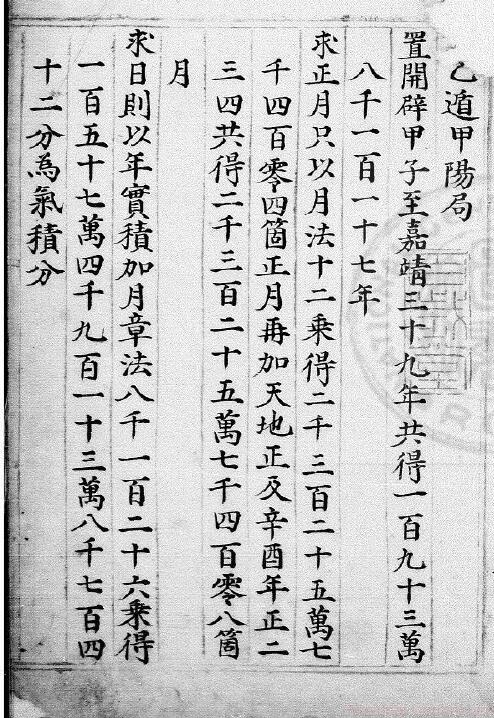 乙遁甲陽局
置開辟甲子至嘉靖三十九年共得一百九十三萬
八千一百一十七年
求正月只以月法十二乘得二千三百二十五萬七
千四百零四箇正月再加天地正及辛酉年正二
三四共得二千三百二十五萬七千四百零八箇
月
求日則以年實積加月章法八千一百二十六乘得
一百五十七萬四千九百一十三萬八千七百四
十二分為氣積分